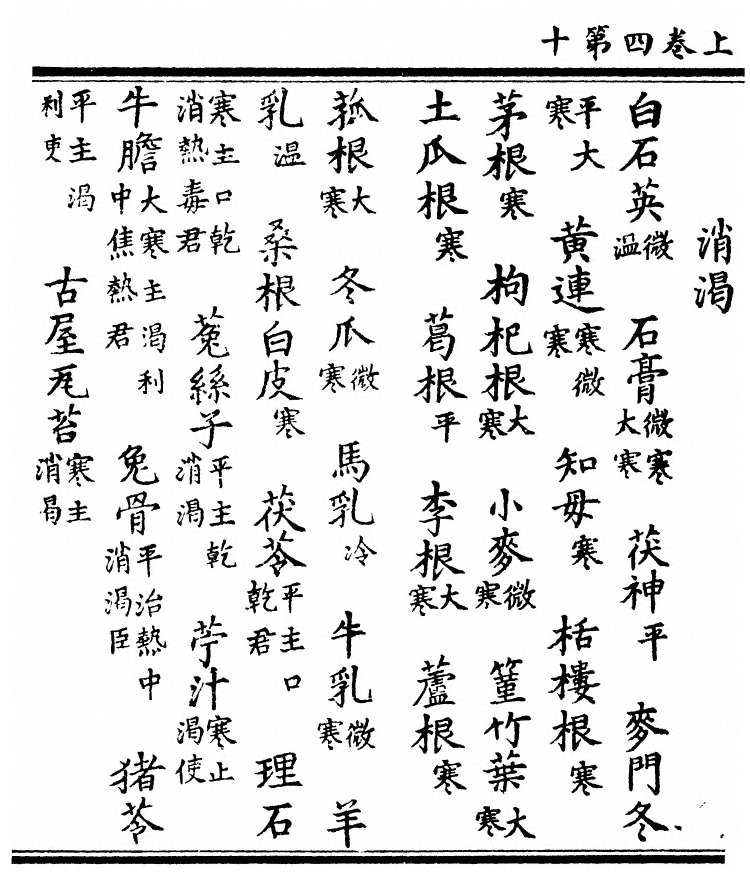 上卷四第十
消渴
白石英微温 石膏微寒大寒 茯神平 麥門冬
平大寒 黄連寒微寒 知母寒 栝樓根寒
茅根寒 枸杞根大寒 小麥微寒 䈽竹葉大寒
土瓜根寒 葛根平 李根大寒 蘆根寒
菰根大寒 冬瓜微寒 馬乳冷 牛乳微寒 羊
乳温 桑根白皮寒 茯苓平主口乾君 理石
寒主口乾消熱毒君 菟絲子平主乾消渴 苧汁寒止渴使
牛膽大寒主渴利中焦熱君 兔骨平治熱中消渴臣 猪苓
平主渴利吏 古屋瓦苔寒主消曷